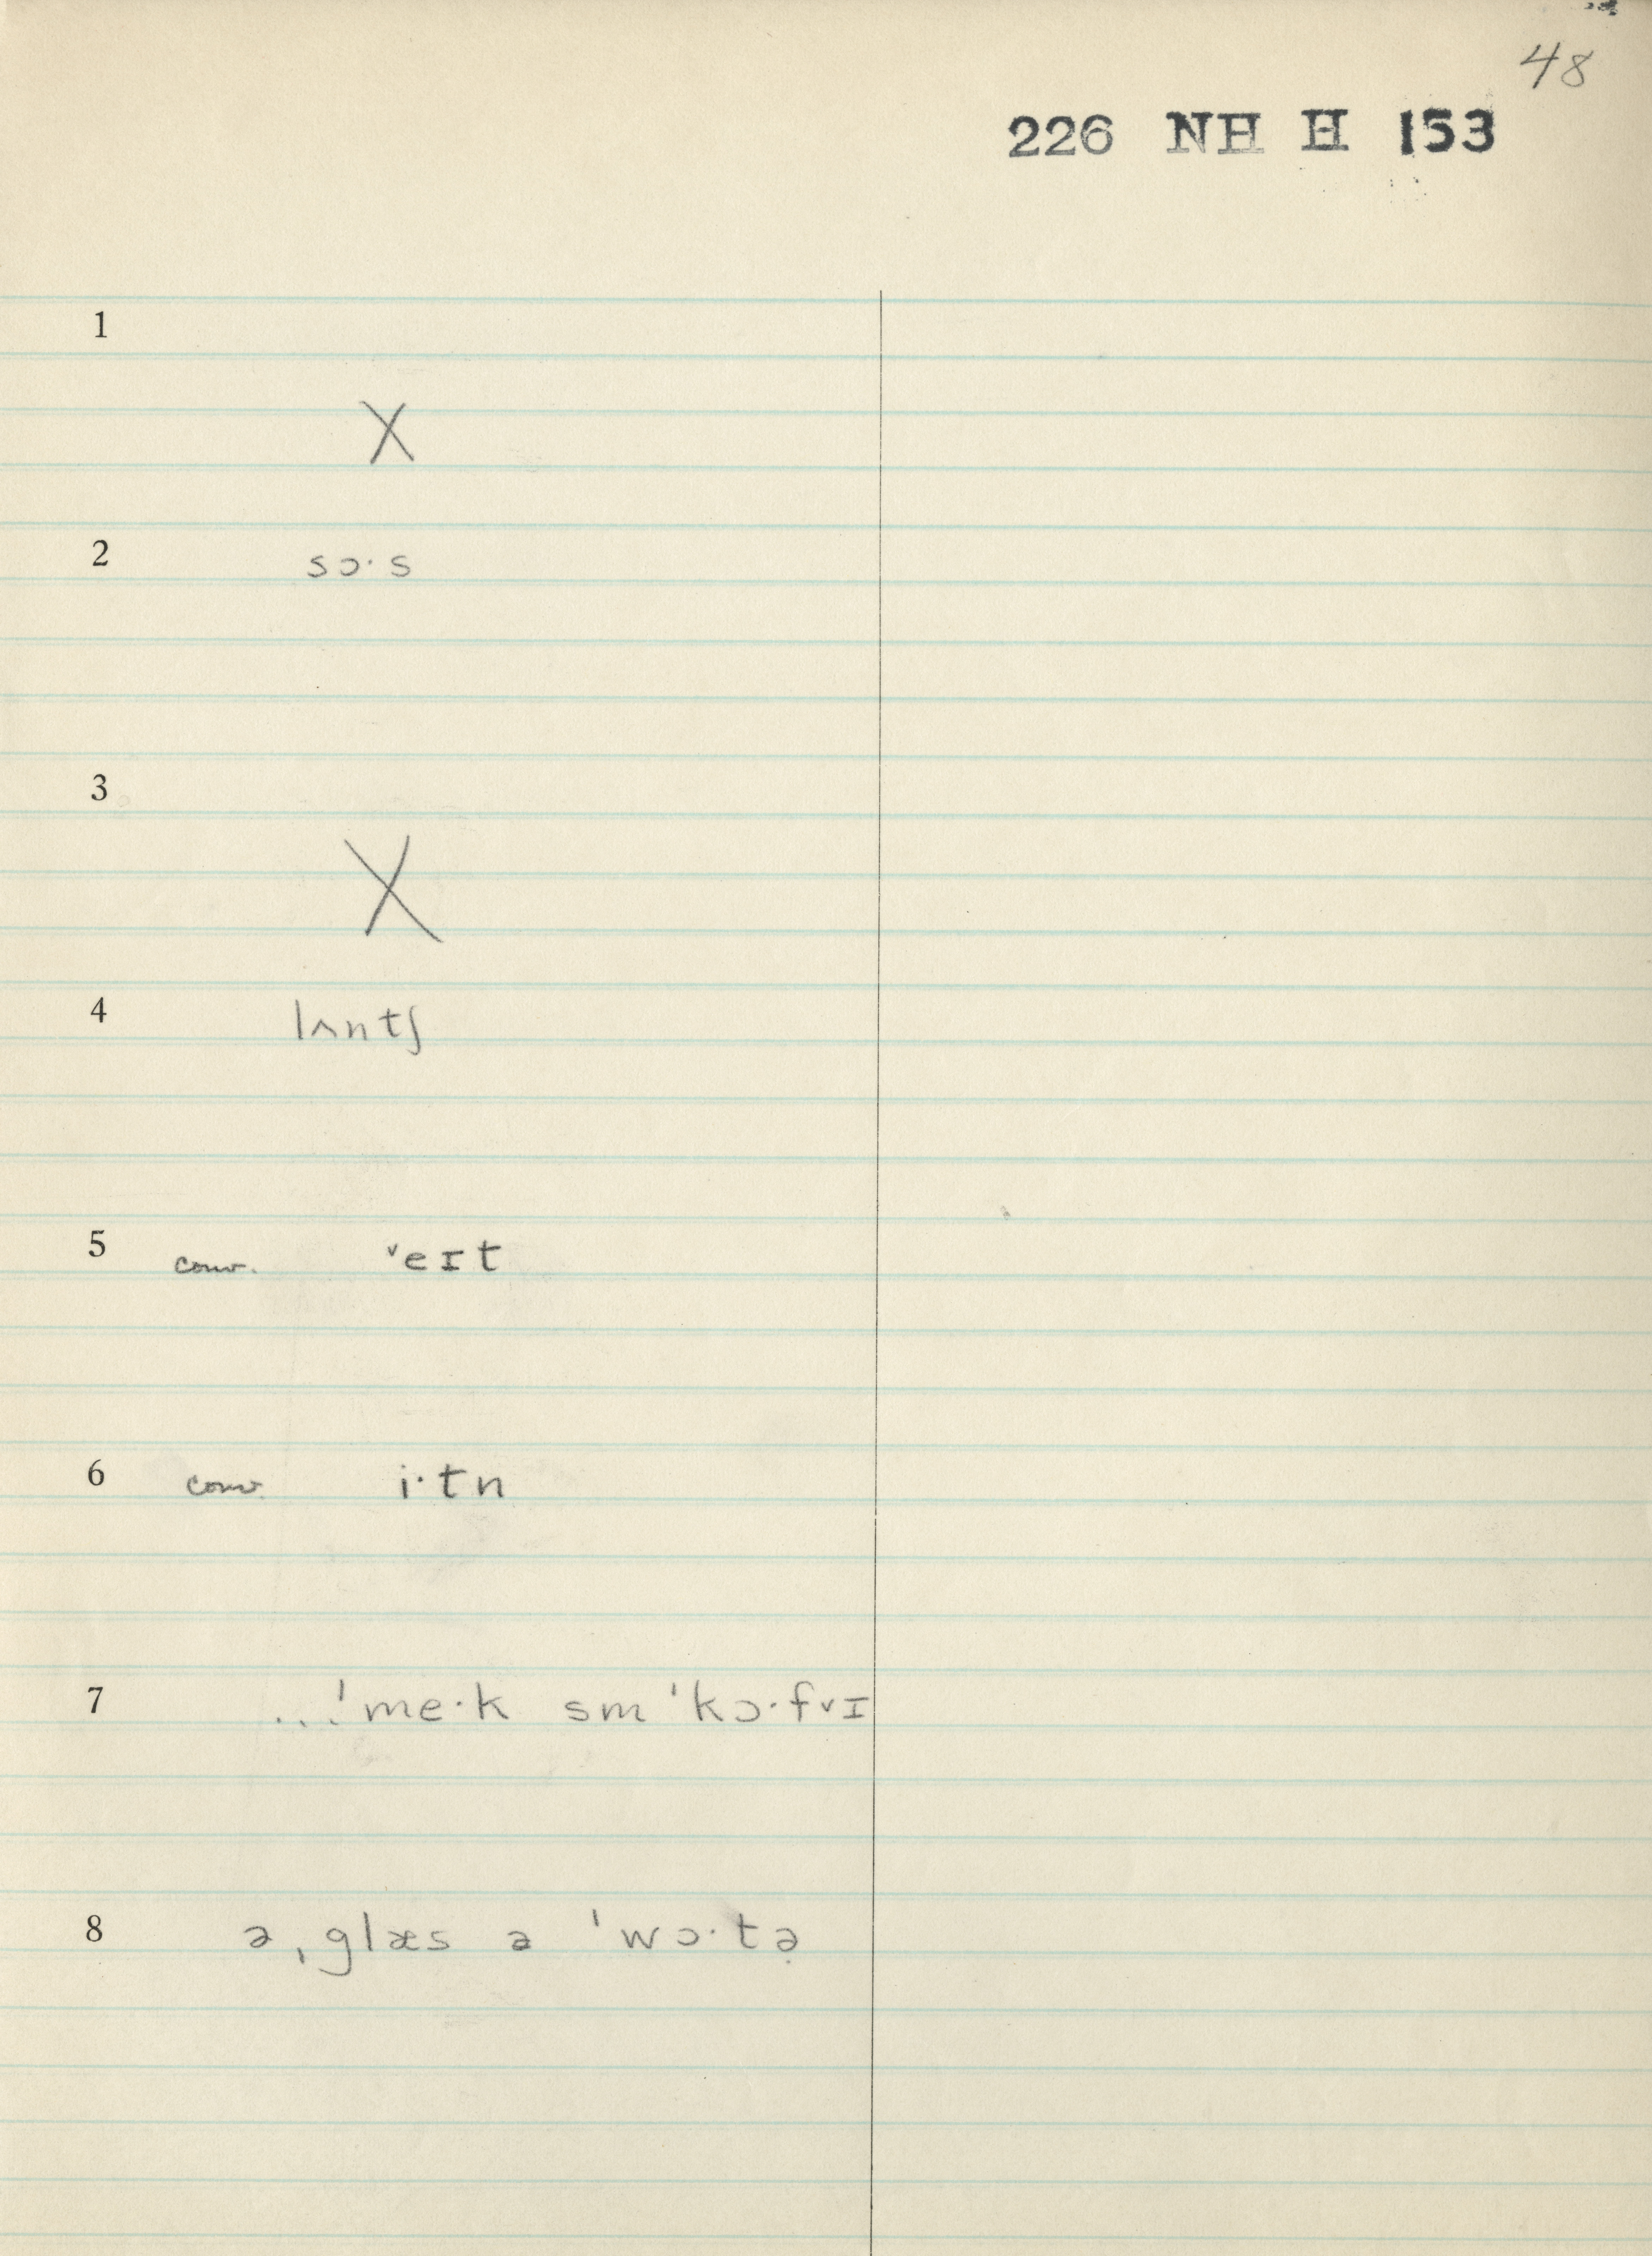 48
226 NH H 153
1
X
2 sɔ·s
3
X
4 lʌntʃ
5 conv. ˅eɪt
6 conv. i·tn
7 ...ˈme·k sm ˈkɔ·f˅ɪ
8 ə ˌglæs ə ˈwɔ·tə̣